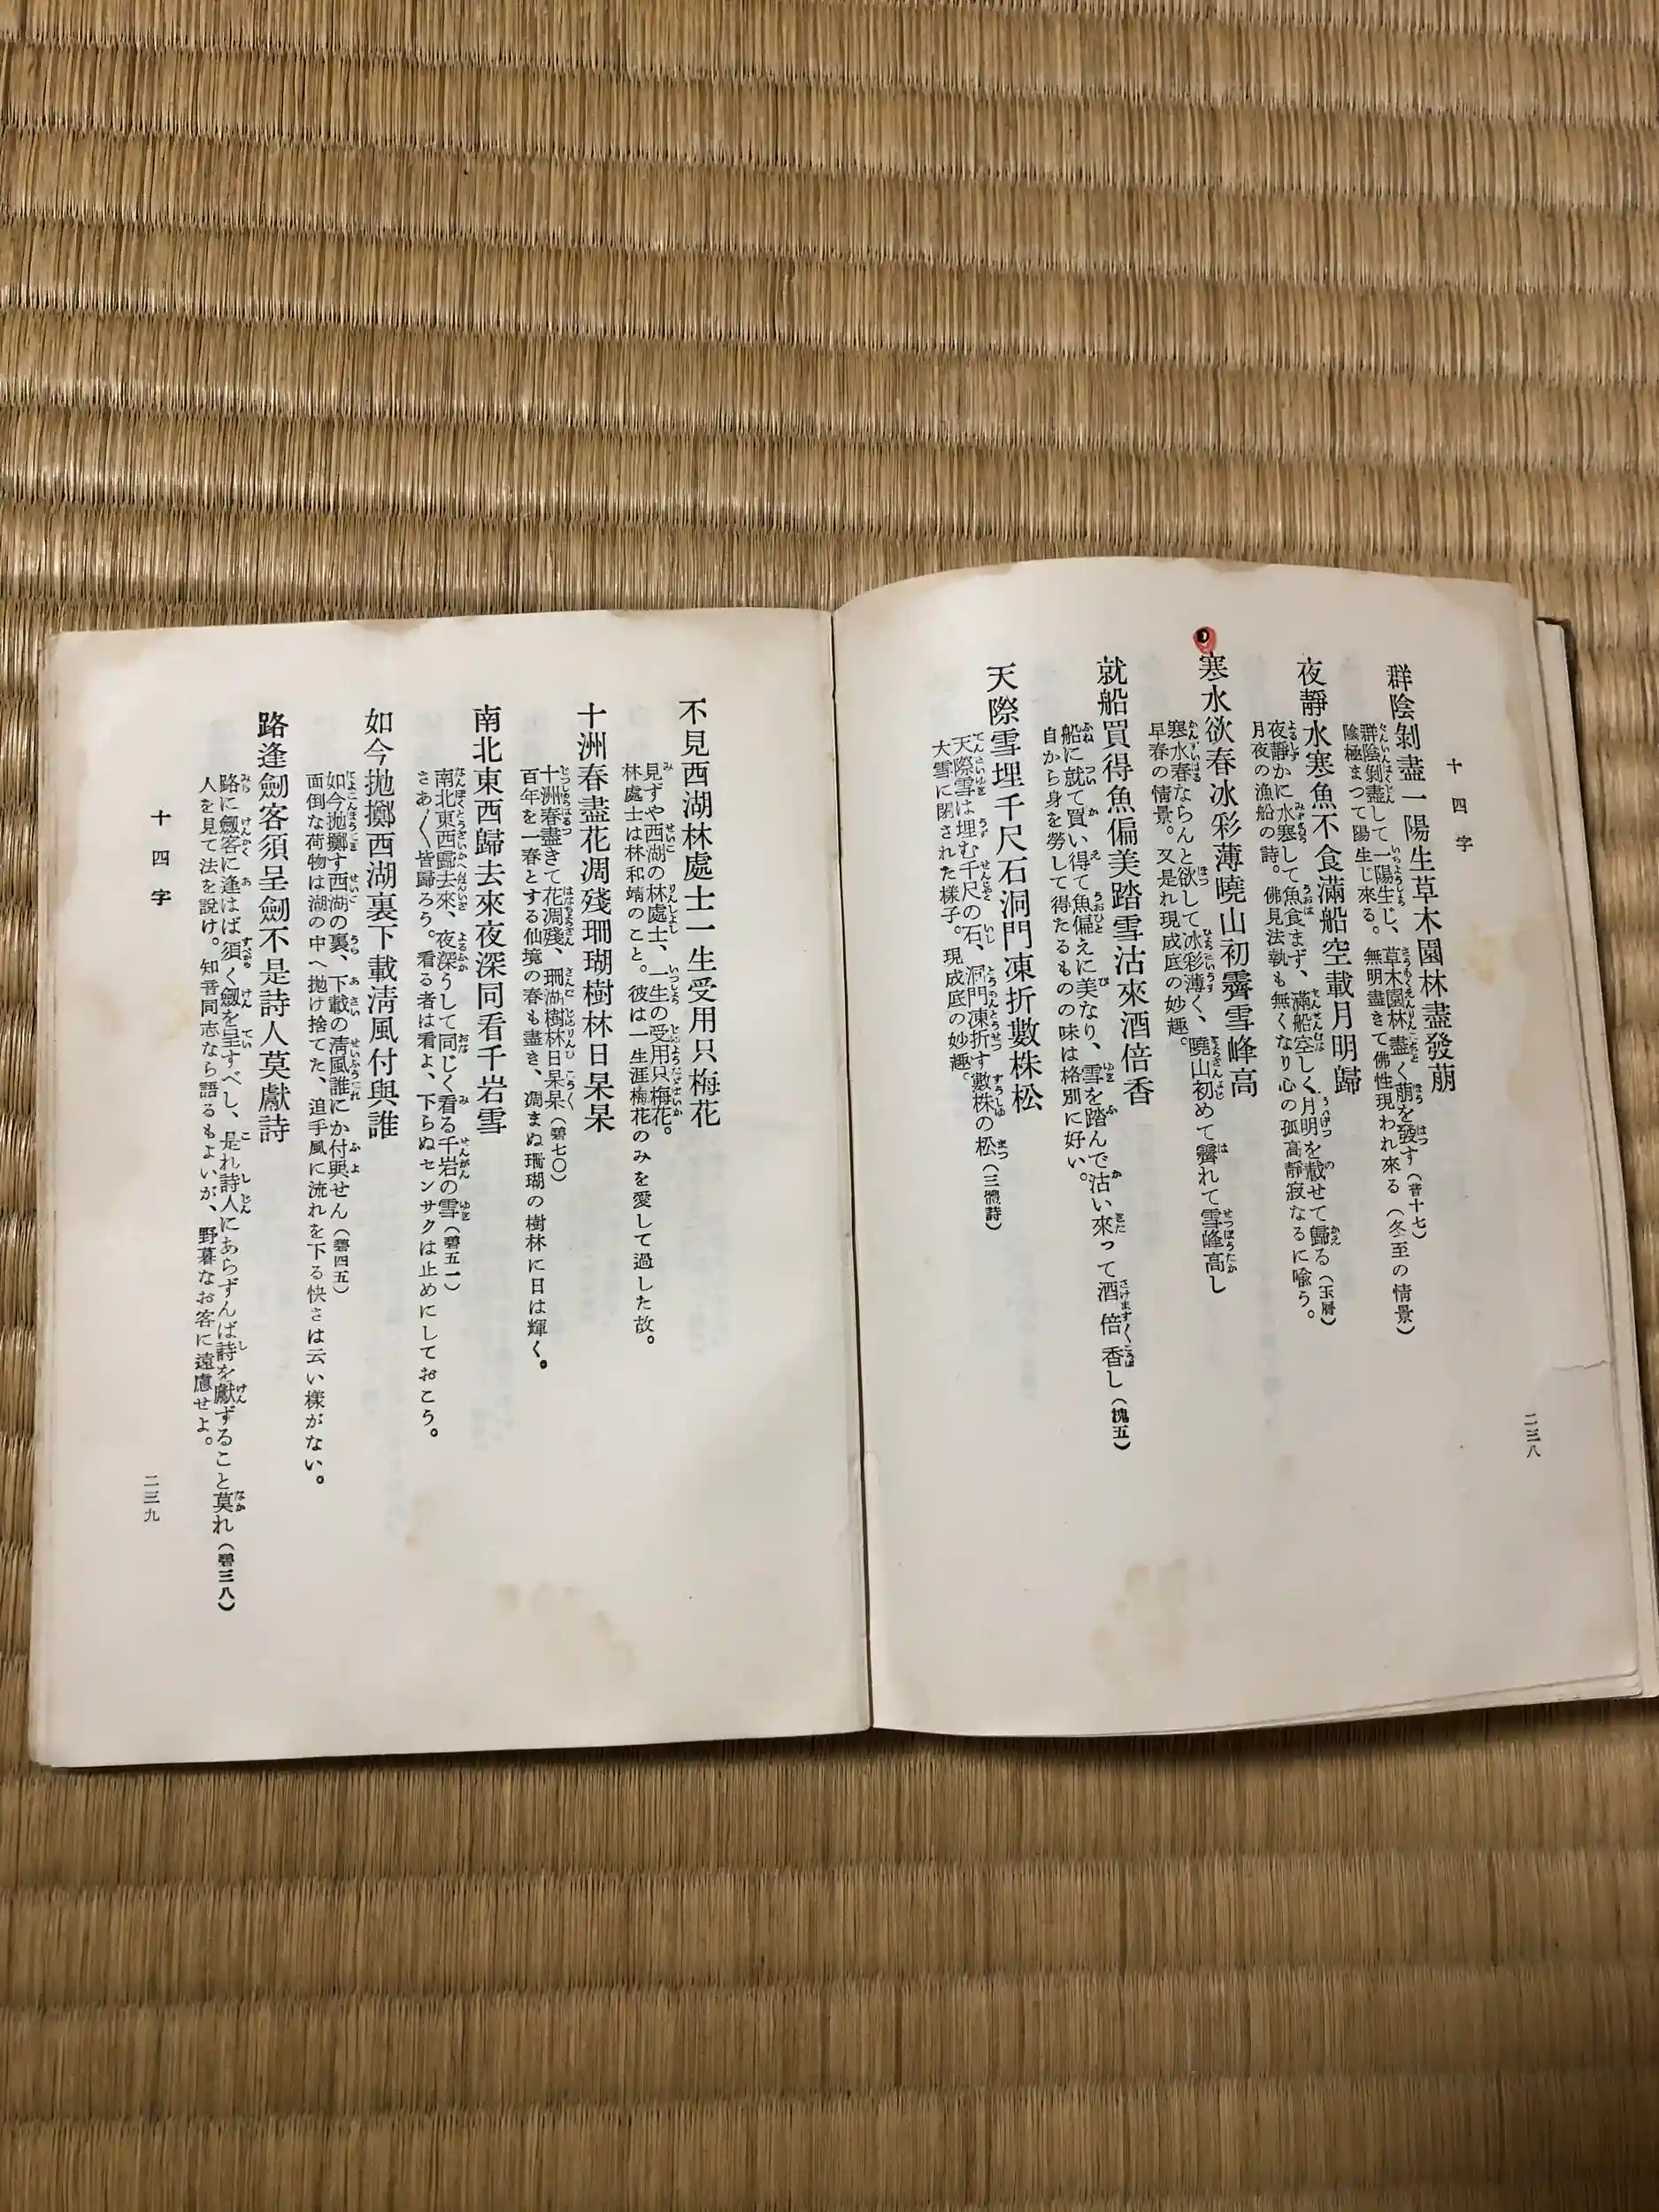 十四字
群陰剝盡一陽生草木園林盡發萠
群陰剝盡して一陽生じ、草木園林盡く萠を發す（普十七）
陰極まつて陽生じ來る。無明盡きて佛性現われ來る（冬至の情景）
夜靜水寒魚不食滿船空載月明歸
夜靜かに水寒して魚食まず、滿船空しく月明を載せて歸る
月夜の漁船の詩。佛見法執も無くなり心の孤高靜寂なるに喩う。
寒水欲春冰彩薄曉山初霽雪峰高
寒水春ならんと欲して冰彩薄く、曉山初めて霽れて雪峰高し
早春の情景。又是れ現成底の妙趣。
就船買得魚偏美踏雪沽來酒倍香
船に就て買い得て魚偏えに美なり、雪を踏んで沽い來って酒倍香し（槐五）
自から身を勞して得たるものの味は格別に好い。
天際雪埋千尺石洞門凍折數株松
天際雪は埋む千尺の石、洞門凍折す數株の松（三體詩）
大雪に閉された樣子。現成底の妙趣。
二三八
不見西湖林處士一生受用只梅花
見ずや西湖の林處士、一生の受用只梅花。
林處士は林和靖のこと。彼は一生涯梅花のみを愛して過した故。
十洲春盡花凋殘珊瑚樹林日杲杲
十洲春盡きて花凋殘、珊瑚樹林日杲杲（碧七〇）
百年を一春とする仙境の春も盡き、凋まぬ珊瑚の樹林に日は輝く。
南北東西歸去來夜深同看千岩雪
南北東西歸去來、夜深うして同じく看る千岩の雪（碧五一）
さあ〱皆歸ろう。看る者は看よ、下らぬセンサクは止めにしておこう。
如今抛擲西湖裏下載淸風付與誰
如今抛擲す西湖の裏、下載の淸風誰にか付與せん（碧四五）
面倒な荷物は湖の中へ抛げ捨てた、追手風に流れを下る快さは云い樣がない。
路逢劍客須呈劍不是詩人莫獻詩
路に劔客に逢はば須く劔を呈すべし、是れ詩人にあらずんば詩を獻ずること莫れ（碧三八）
人を見て法を說け。知音同志なら語るもよいが、野暮なお客に遠慮せよ。
十四字
二三九